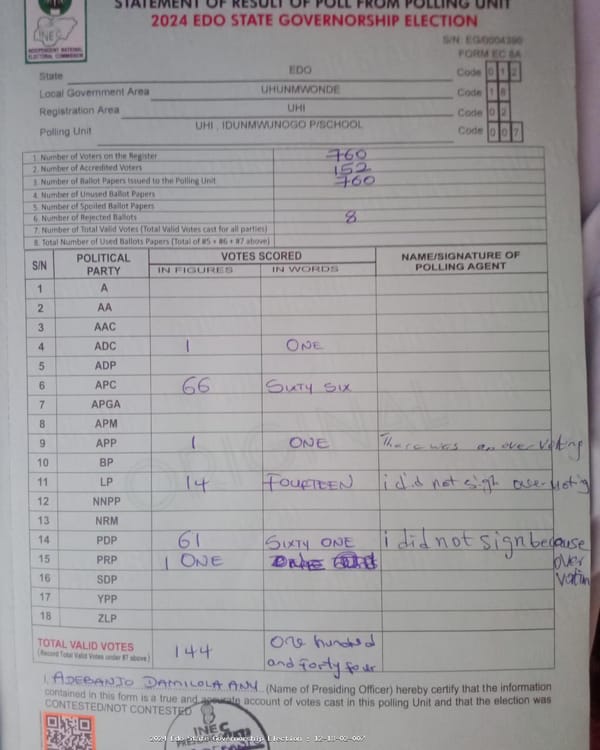 STATEMENT OF RESULT OF POLL FROM POLLING UNIT
2024 EDO STATE GOVERNORSHIP ELECTION
INEC
INDEPENDENT NATIONAL ELECTORAL COMMISSION
FORM EC 8A
State EDO Code 0 1 2
Local Government Area UHUNMWONDE Code 1 8
Registration Area UHI Code 0 2
Polling Unit UHI , IDUNMWUNOGO P/SCHOOL Code 0 0 7
1. Number of Voters on the Register 760
2. Number of Accredited Voters 152
3. Number of Ballot Papers Issued to the Polling Unit 760
4. Number of Unused Ballot Papers
5. Number of Spoiled Ballot Papers
6. Number of Rejected Ballots 8
7. Number of Total Valid Votes (Total Valid Votes cast for all parties)
8. Total Number of Used Ballots Papers (Total of #5 + #6 + #7 above)
S/N POLITICAL PARTY VOTES SCORED NAME/SIGNATURE OF POLLING AGENT
IN FIGURES IN WORDS
1 A
2 AA
3 AAC
4 ADC 1 ONE
5 ADP
6 APC 66 SIXTY SIX
7 APGA
8 APM
9 APP 1 ONE There was an over voting
10 BP
11 LP 14 FOURTEEN i did not sign over voting
12 NNPP
13 NRM
14 PDP 61 SIXTY ONE i did not sign because over voting
15 PRP 1 ONE
16 SDP
17 YPP
18 ZLP
TOTAL VALID VOTES 144 One hundred and forty four
(Record Total Valid Votes under #7 above)
I, ADEBANJO DAMILOLA ANY (Name of Presiding Officer) hereby certify that the information
contained in this form is a true and accurate account of votes cast in this polling Unit and that the election was
CONTESTED/NOT CONTESTED
INEC
2024 Edo State Governorship Election : 12-18-02-007